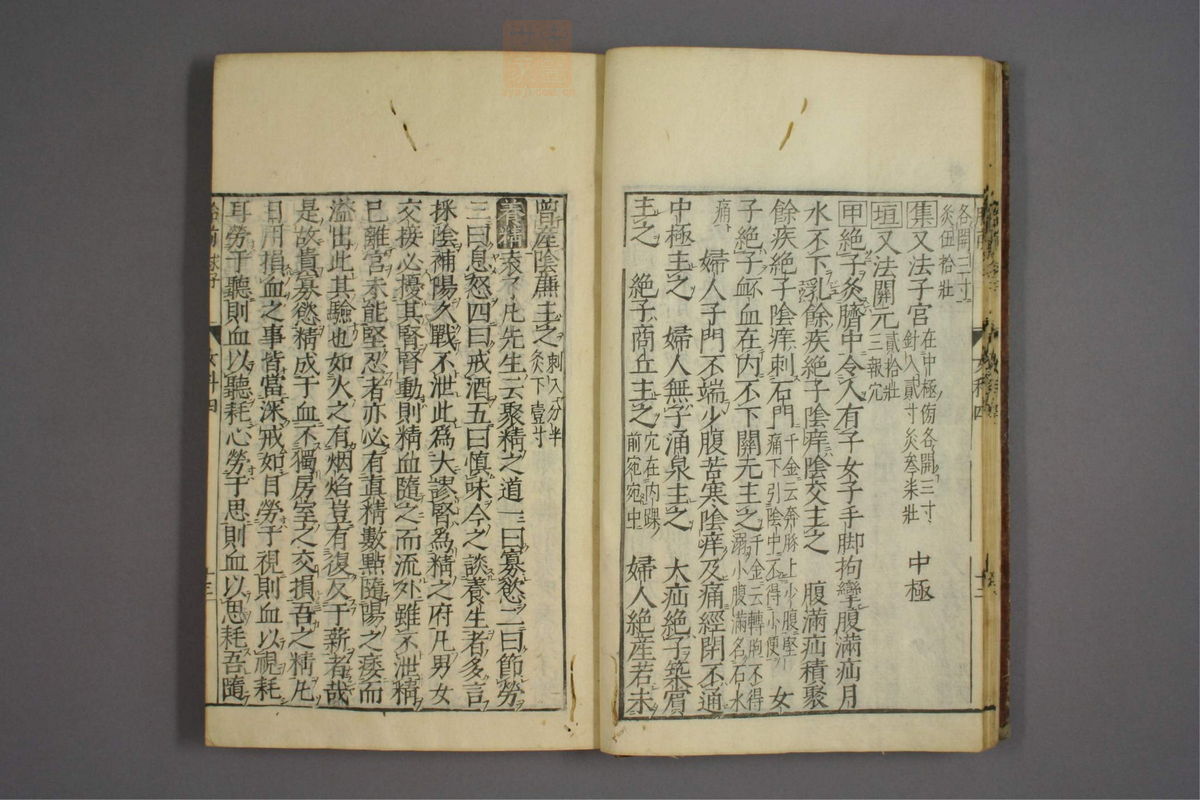 各開三寸
灸伍拾壯
集又法子宮在中極傍各開三寸針入貳寸灸叁柒壯 中極
垣又法關元貳拾壯三報穴
甲絶子灸臍中令人有子女子手脚拘攣腹滿疝月
水不下乳餘疾絶子陰痒陰交主之 腹滿疝積聚
餘疾絶子陰痒刺石門千金云奔豚上少腹堅痛下引陰中不得小便 女
子絶子衃血在内不下關元主之千金云轉胞不得溺小腹滿名石水
痛 婦人子門不端少腹苦寒陰痒及痛經閉不通
中極主之 婦人無子涌泉主之 大疝絶子築賓
主之 絶子商丘主之穴在内踝前宛宛中 婦人絶産若未
曾産陰廉主之刺入八分半灸下壹寸
養精袁了凡先生云聚精之道一曰寡慾二曰節勞
三曰息怒四曰戒酒五曰慎味今之談養生者多言
採陰補陽久戰不泄此爲大謬腎為精之府凡男女
交接必擾其腎腎動則精血隨之而流外雖不泄精
已離宮未能堅忍者亦必有真精數點隨陽之痿而
溢出此其驗也如火之有烟焰豈有復反于薪者哉
是故貴寡慾精成于血不獨房室之交損吾之精凡
日用損血之事皆當深戒如目勞于視則血以視耗
耳勞于聽則血以聽耗心勞于思則血以思耗吾隨
胎前 求子 女科四 十三